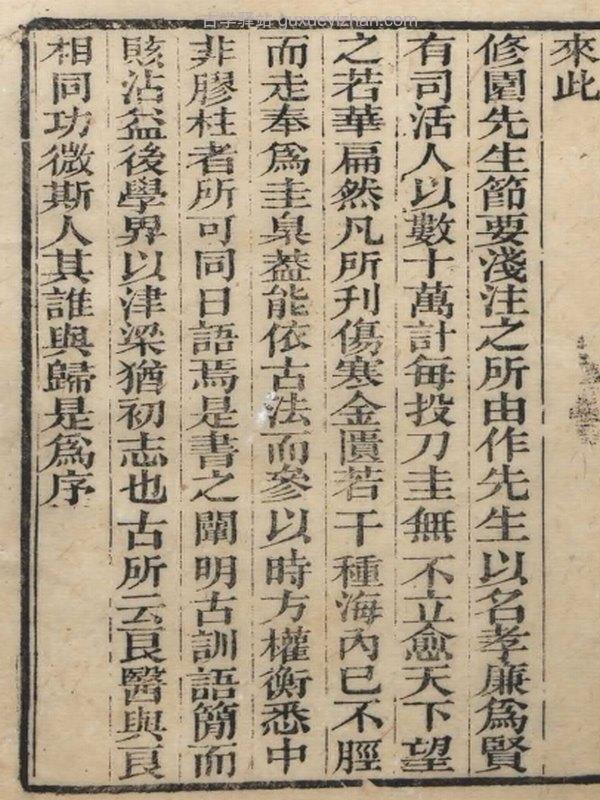 古學驛站 guxueyizhan.com
來此
修園先生節要淺注之所由作先生以名孝廉爲賢
有司活人以數十萬計每投刀圭無不立愈天下望
之若華扁然凡所刋傷寒金匱若干種海內已不脛
而走奉爲圭臬葢能依古法而參以時方權衡悉中
非膠柱者所可同日語焉是書之闡明古訓語簡而
賅沾益後學界以津梁猶初志也古所云良醫與良
相同功微斯人其誰與歸是爲序